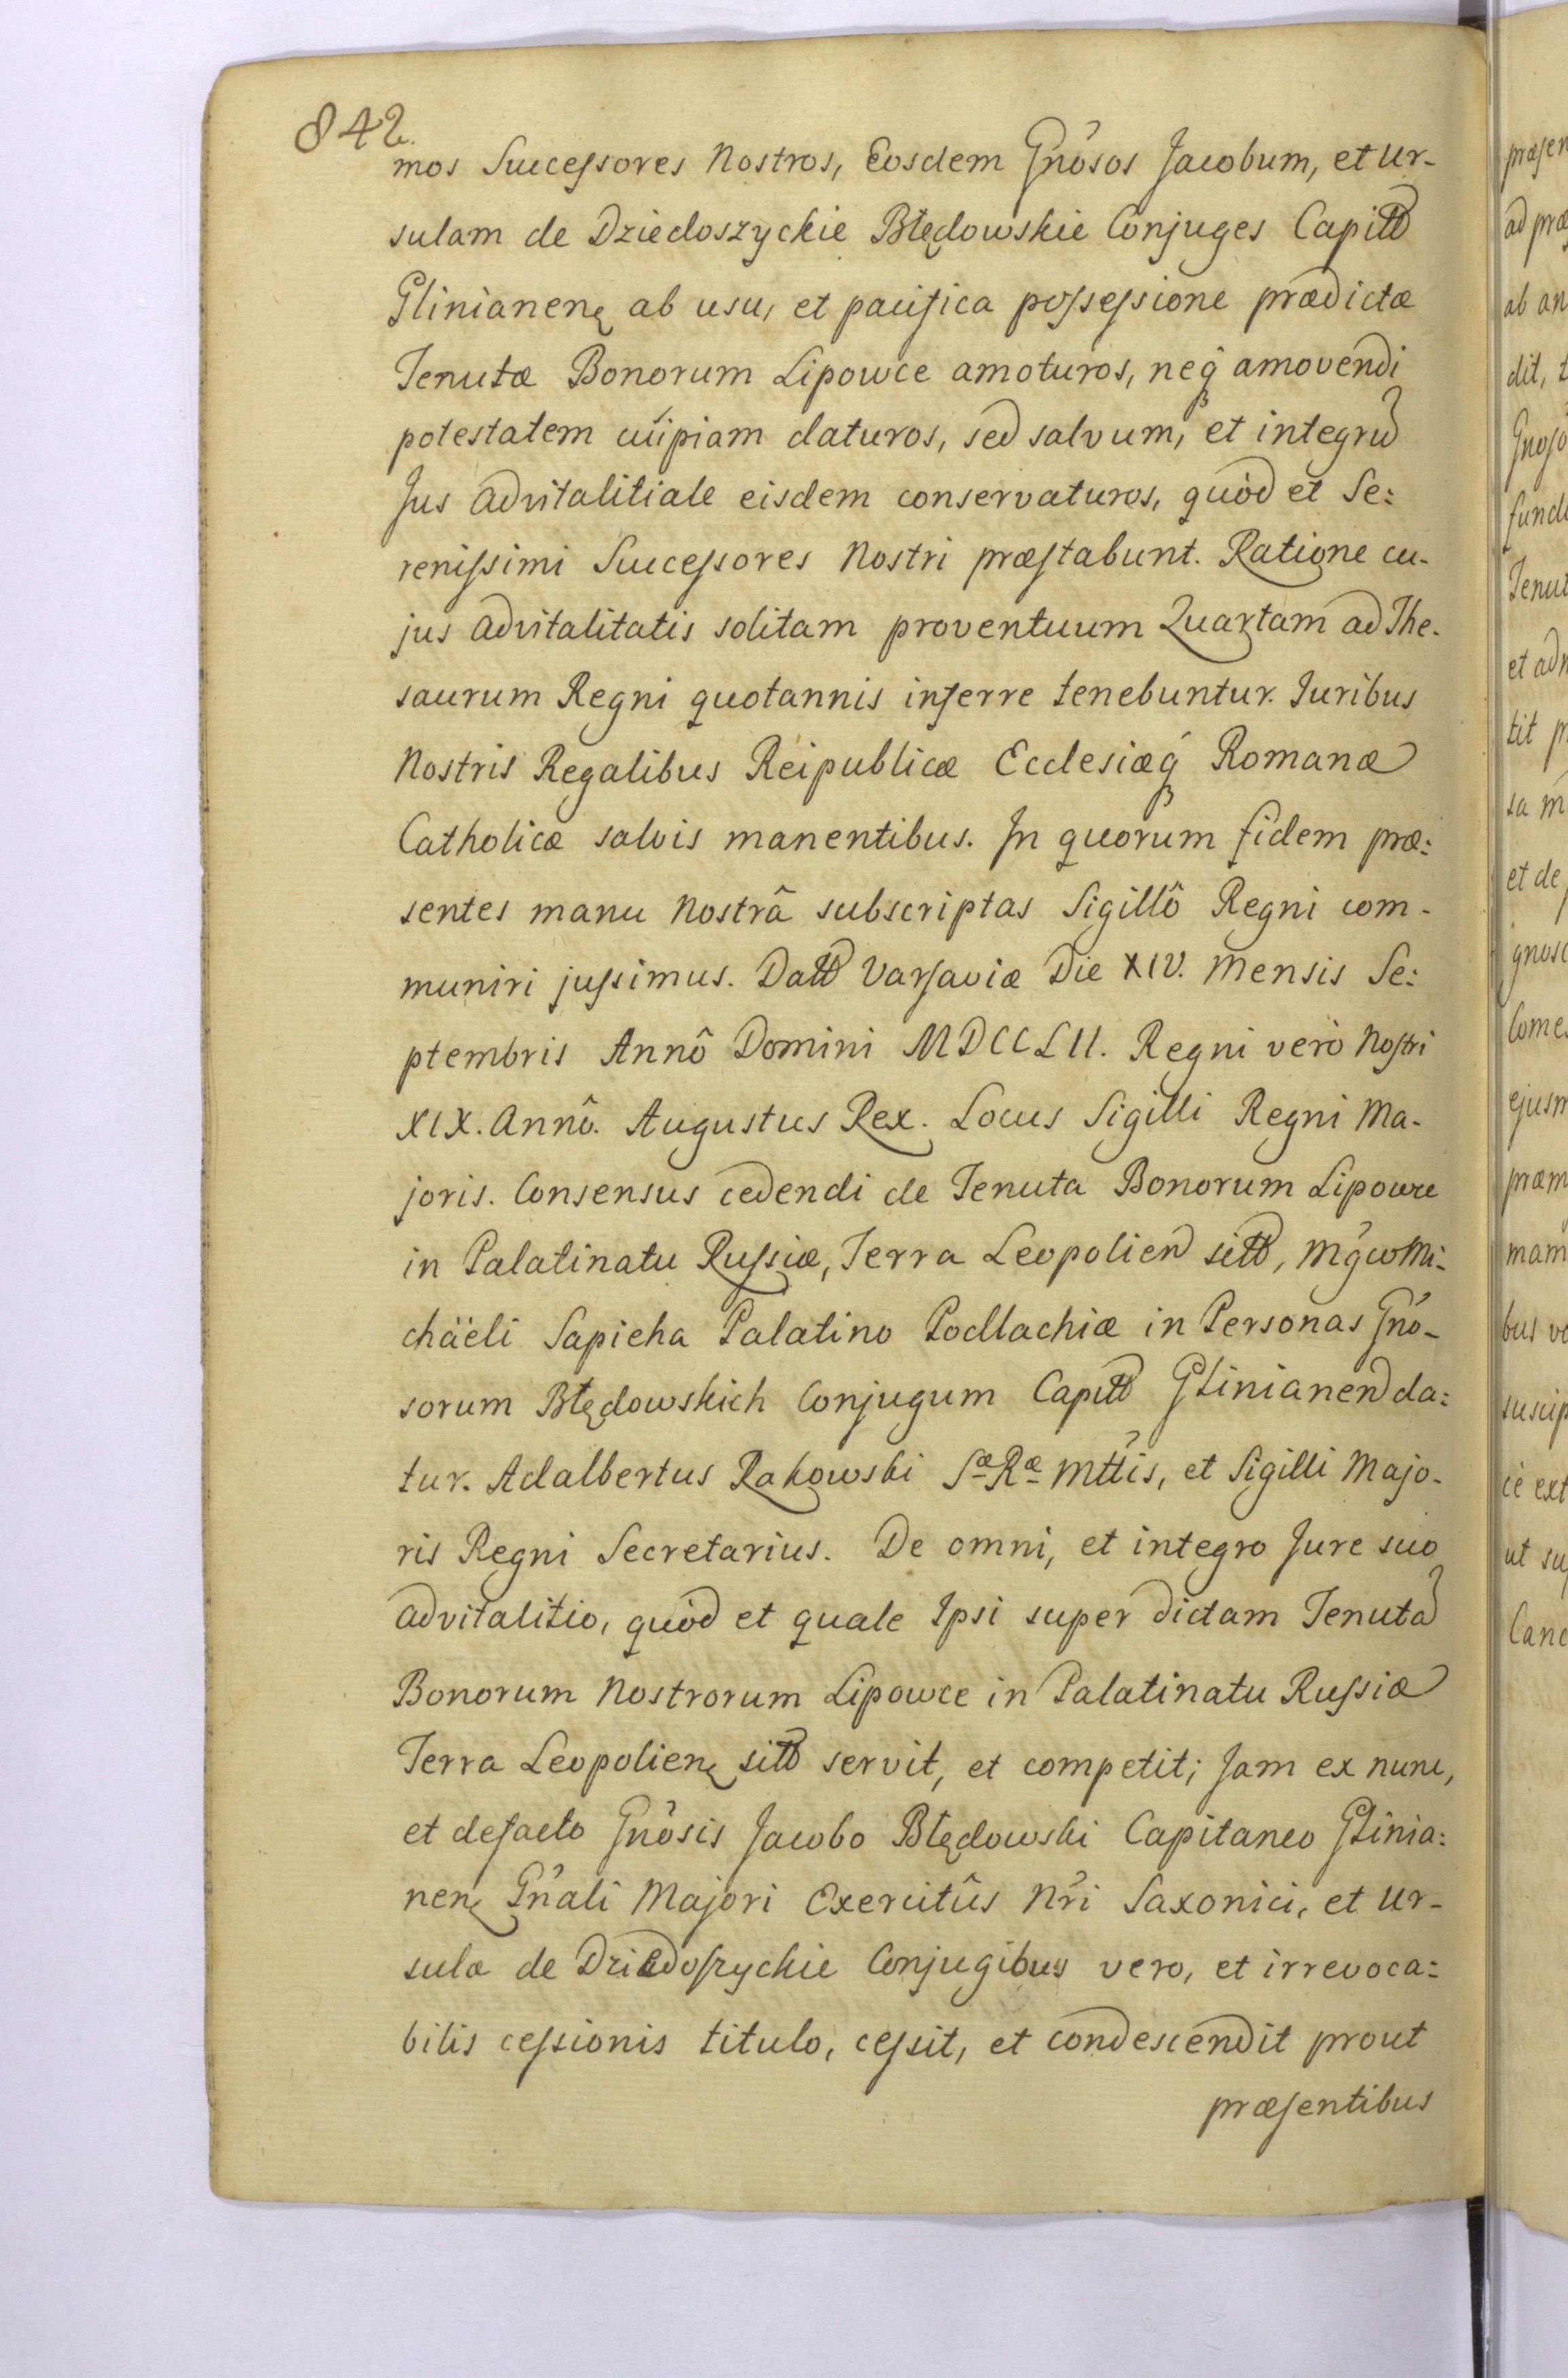 842.
mos Successores Nostros, Eosdem Gnôsos Jacobum, et Ur-
sulam de Dziedoszyckie Błędowskie Conjuges Capitt
Glinianen ab usu, et pacifica possessione prædictæ
Tenutæ Bonorum Lipowce amoturos, neq amovendi
potestatem cuipiam daturos, sed salvum, et integrū
Jus advitalitiale eisdem conservaturos, quòd et Se:
renissimi Successores Nostri præstabunt. Ratione cu-
jus advitalitatis solitam proventuum Quartam ad The-
saurum Regni quotannis inferre tenebuntur. Juribus
Nostris Regalibus Reipublicæ Ecclesiæq Romanæ
Catholicæ salvis manentibus. In quorum fidem præ:
sentes manu Nostrâ subscriptas Sigillô Regni com-
muniri jussimus. Datt Varsaviæ Die XIV. Mensis Se:
ptembris Annô Domini MDCCLII. Regni verò Nostri
XIX. Annô. Augustus Rex. Locus Sigilli Regni Ma-
joris. Consensus cedendi de Tenuta Bonorum Lipowce
in Palatinatu Russiæ, Terra Leopolien sitt, Mgco Mi:
chäeli Sapieha Palatino Podlachiæ in Personas Gnô-
sorum Błędowskich Conjugum Capitt Glinianen da:
tur. Adalbertus Rakowski Sæ Ræ Mttis, et Sigilli Majo-
ris Regni Secretarius. De omni, et integro Jure suo
advitalitio, quòd et quale Ipsi super dictam Tenutā
Bonorum Nostrorum Lipowce in Palatinatu Russiæ
Terra Leopolien sitt servit, et competit; Jam ex nunc,
et defacto Gnôsis Jacobo Błędowski Capitaneo Glinia:
nen Gnali Majori Exercitûs Nri Saxonici, et Ur-
sulæ de Dziedoszyckie Conjugibus vero, et irrevoca:
bilis cessionis titulo, cessit, et condescendit prout
præsentibus